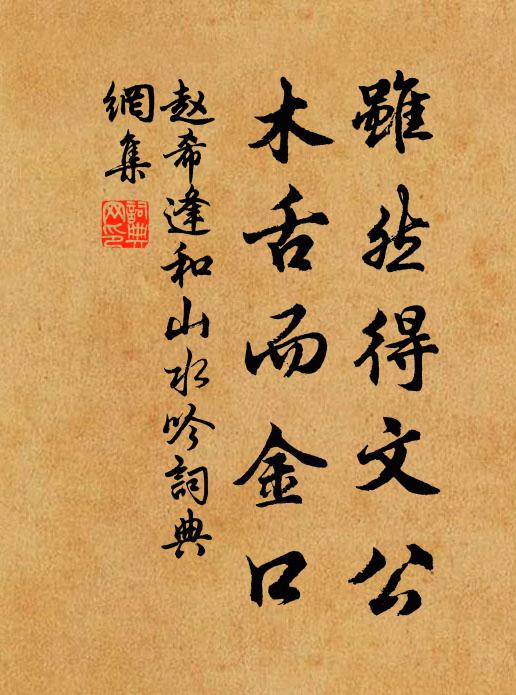 雖然得文公
木舌而金口
赵希逢和山水吟詞典
網集
詞典
网印